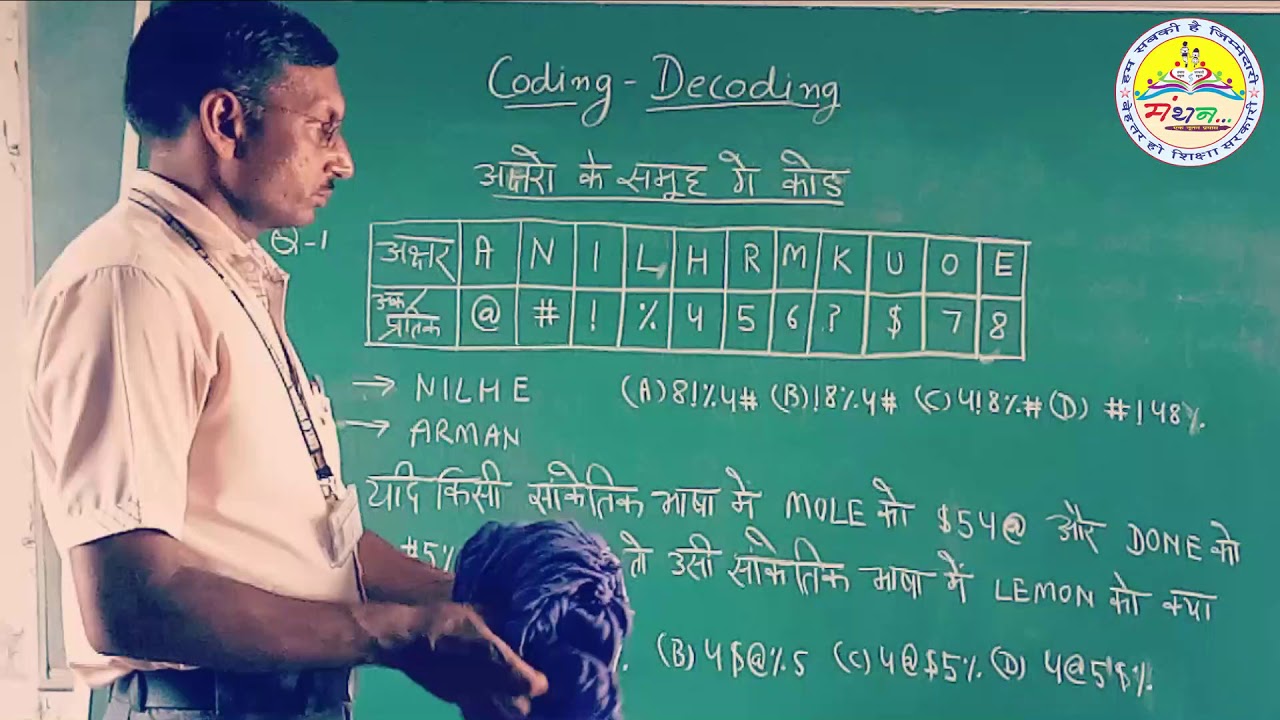 Coding - Decoding
अक्षरो के समूह मे कोड
Q-1
अक्षर A N I L H R M K U O E
अंक/प्रतिक @ # ! % 4 5 6 ? $ 7 8
→ NILHE (A) 8!%4# (B) !8%4# (C) 4!8%# (D) #!48%
→ ARMAN
यदि किसी सांकेतिक भाषा में MOLE को $54@ और DONE को
#5% तो उसी सांकेतिक भाषा में LEMON को क्या
(B) 4$@%5 (C) 4@$5% (D) 4@5$%
हम सबकी है जिम्मेदारी
बेहतर हो शिक्षा सरकारी
मंथन...
एक नूतन प्रयास